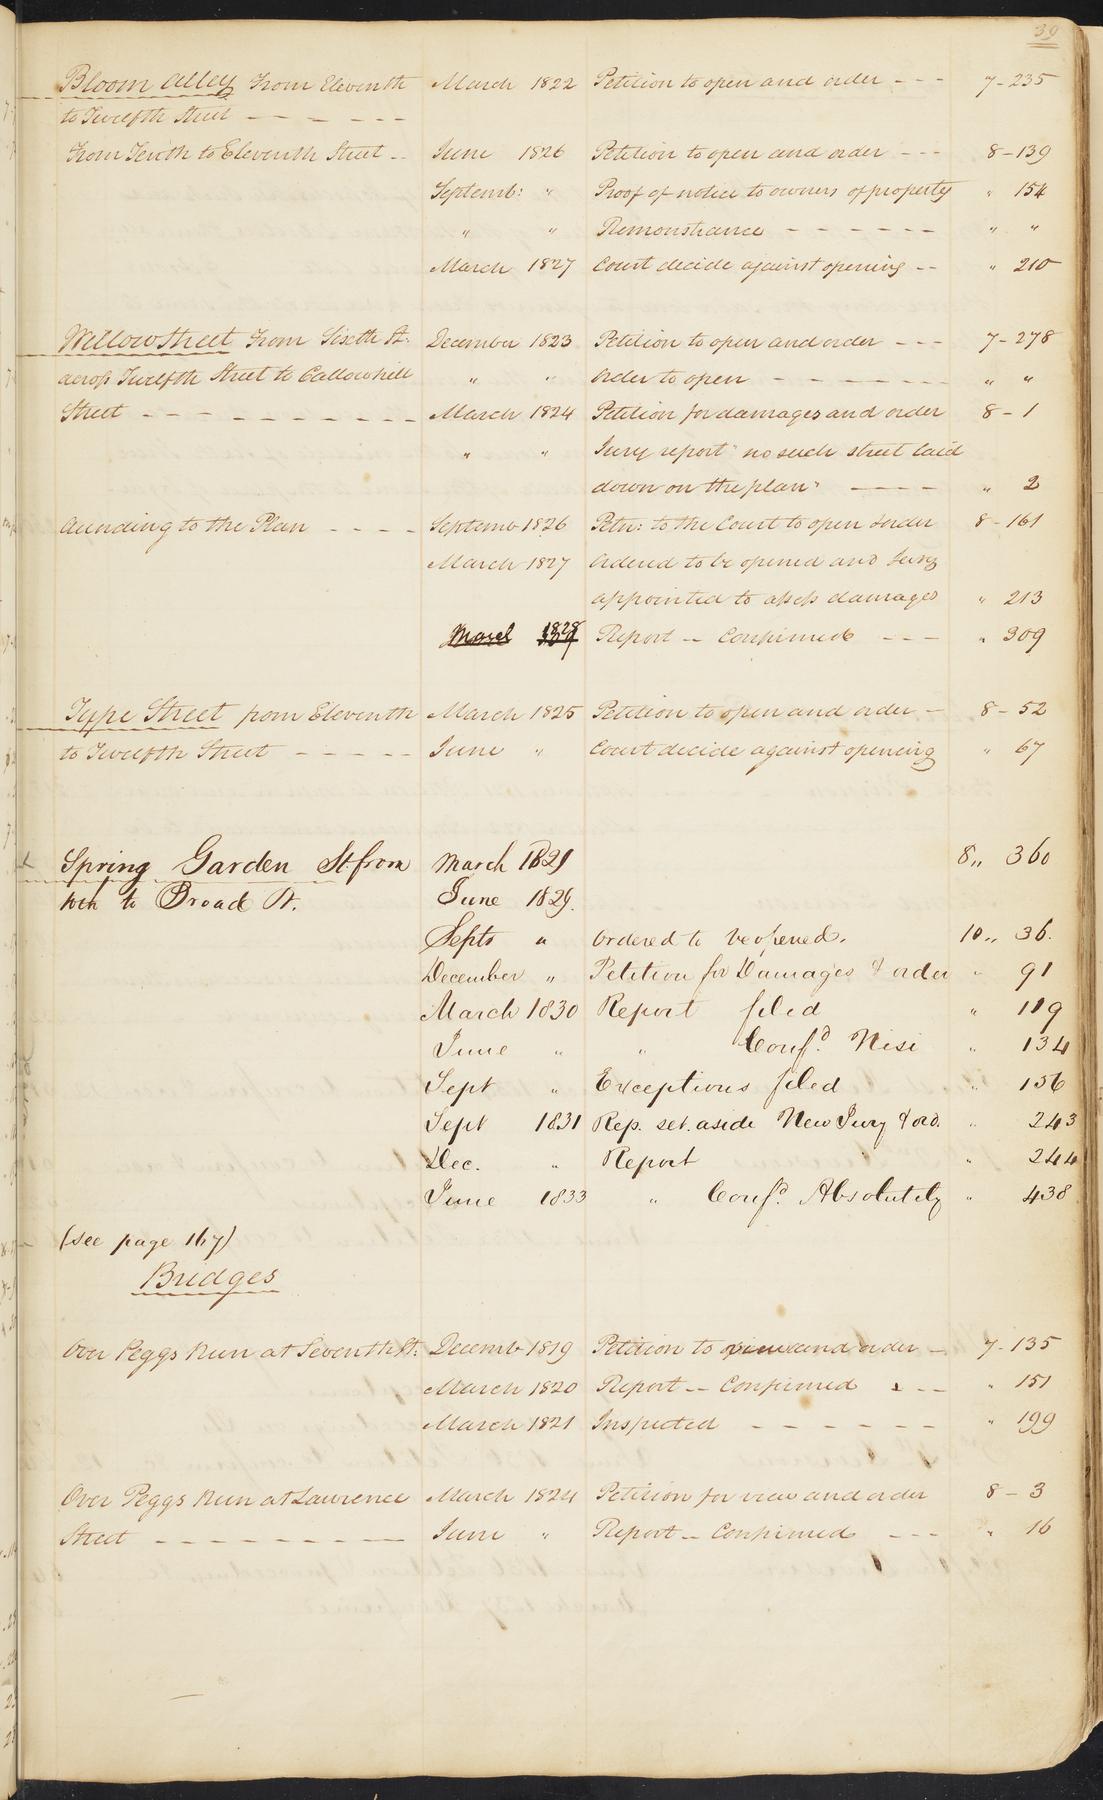 39
Bloom Alley From Eleventh March 1822 Petition to open and order - - - 7-235
to Twelfth Street - - - - - -
From Tenth to Eleventh Street - - June 1826 Petition to open and order - - - 8-139
Septemb: " Proof of notice to owners of property " 154
" " Remonstrance - - - - - - " "
March 1827 Court decide against opening - - " 210
Willow Street From Sixth St: December 1823 Petition to open and order - - - 7-278
across Twelfth Street to Callowhill " " Order to open - - - - - - - " "
Street - - - - - - - - - March 1824 Petition for damages and order 8-1
" " Jury report "no such street laid
down on the plan" - - - - " 2
According to the Plan - - - - Septemb 1826 Petn: to the Court to open & order 8-161
March 1827 Ordered to be opened and Jury
appointed to assess damages " 213
March 1828 Report -- Confirmed - - - " 309
Type Street from Eleventh March 1825 Petition to open and order - 8-52
to Twelfth Street - - - - - June " Court decide against opening " 67
Spring Garden St. from March 1829 8,, 360
10th to Broad St. June 1829.
Septr " Ordered to be opened. 10,, 36.
December " Petition for Damages & order " 91
March 1830 Report filed " 119
June " " Confd. Nisi " 134
Sept " Exceptions filed " 156
Sept 1831 Rep. set aside New Jury & ord. " 243
Dec. " Report " 244
June 1833 " Confd. Absolutely " 438
(see page 167)
Bridges
Over Peggs Run at Seventh St: Decemb 1819 Petition to view and order - 7-135
March 1820 Report -- Confirmed - - - " 151
March 1821 Inspected - - - - - - " 199
Over Peggs Run at Lawrence March 1824 Petition for view and order 8-3
Street - - - - - - - - - June " Report -- Confirmed - - - " 16